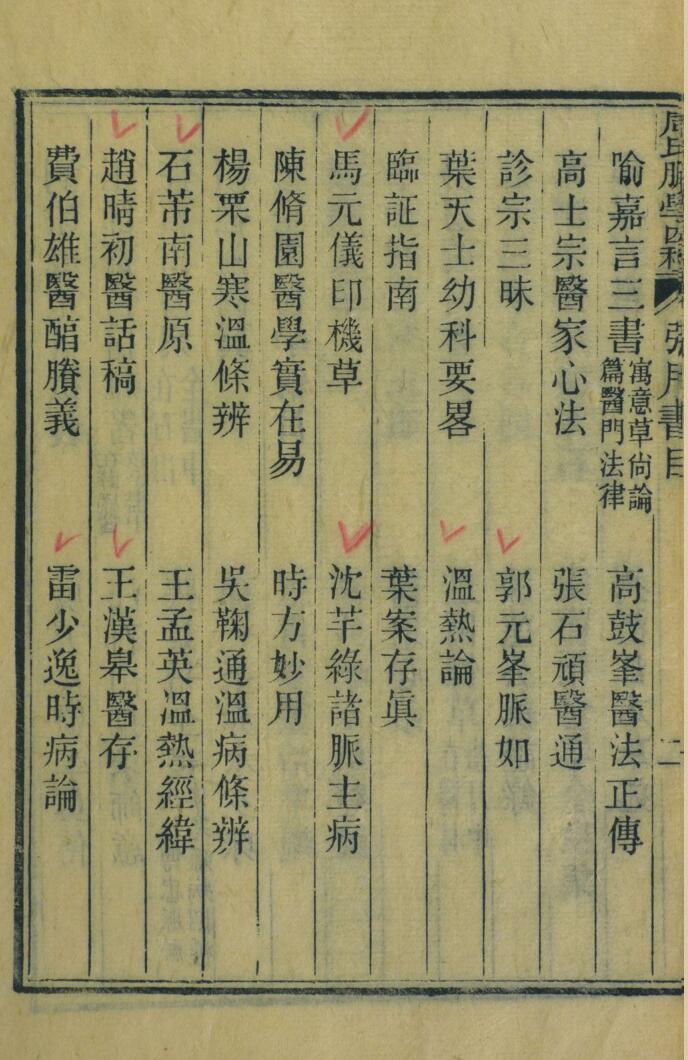 喻嘉言三書 寓意草尙論篇醫門法律 高鼓峯醫法正傳
高士宗醫家心法 張石頑醫通
診宗三昧 郭元峯脈如
葉天士幼科要畧 溫熱論
臨証指南 葉案存眞
馬元儀印機草 沈芊綠諸脈主病
陳脩園醫學實在易 時方妙用
楊栗山寒溫條辨 吳鞠通溫病條辨
石芾南醫原 王孟英溫熱經緯
趙晴初醫話稿 王漢皋醫存
費伯雄醫醕賸義 雷少逸時病論